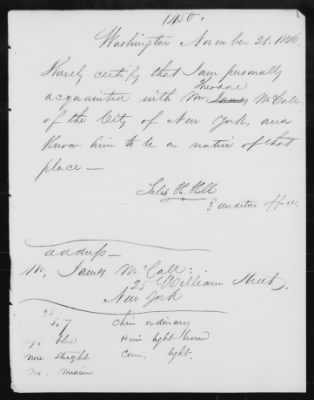 Washington November 21. 1846.
I hereby certify that I am personally
Theodore
acquainted with Mr James McCall,
of the City of New York, and
know him to be a native of that
place —
Hill
3 Auditors office
address —
Mr. James McCall:
25 William Street,
New York
5.7 chin ordinary
eyes blue Hair light brown
nose straight Com. light.
mo. medium